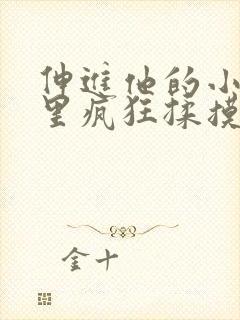 伸进他的小
里疯狂揉摸
金十